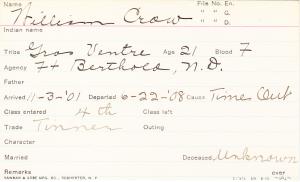 Name William Crow File No. En.
" " G.
Indian name " " O.
Tribe Gros Ventre Age 21 Blood 7
Agency Ft Berthold, N.D.
Father
Arrived 11-3-'01 Departed 6-22-'08 Cause Times Out
Class entered 4th Class left
Trade Tinner Outing
Character
Married Deceased Unknown
Remarks over